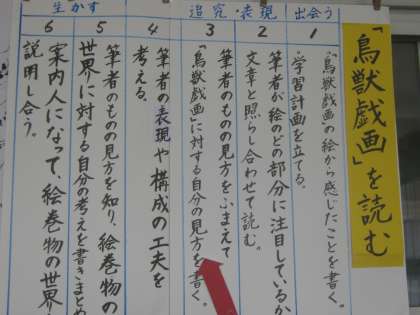 「鳥獣戯画」を読む
出会う
追究・表現
生かす
1
「鳥獣戯画の絵から感じたことを書く。
・学習計画を立てる。
2
筆者が絵のどの部分に注目しているか
文章と照らし合わせて読む。
3
筆者のものの見方をふまえて
「鳥獣戯画」に対する自分の見方を書く。
4
筆者の表現や構成の工夫を
考える。
5
筆者のものの見方を知り、絵巻物の
世界に対する自分の考えを書きまとめ
6
案内人になって、絵巻物の世界
説明し合う。